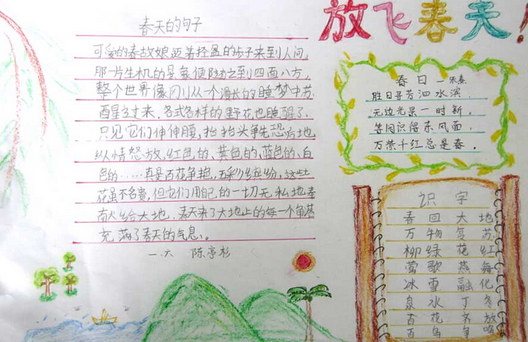 放飞春天!
春天的句子
可爱的春姑娘迈着轻盈的步子来到人间,
那一片生机的景象便随之到四面八方,
整个世界像刚从一个漫长的睡梦中苏
醒过来,各式各样的野花也睡醒了,
只见它们伸伸腰,抬抬头争先恐后地,
纵情怒放,红色的、黄色的、蓝色的、白
色的……真是万花争艳,五彩缤纷,这些
花虽不名贵,但它们用自己的一切无私地奉
献给大地,春天来了大地上的每一个角落
充满了春天的气息。
春日 — 朱熹
胜日寻芳泗水滨
无边光景一时新,
等闲识得东风面,
万紫千红总是春。
识字
春回大地
万物复苏
柳绿花红
莺歌燕舞
冰雪融化
泉水丁冬
百花齐放
百鸟争鸣